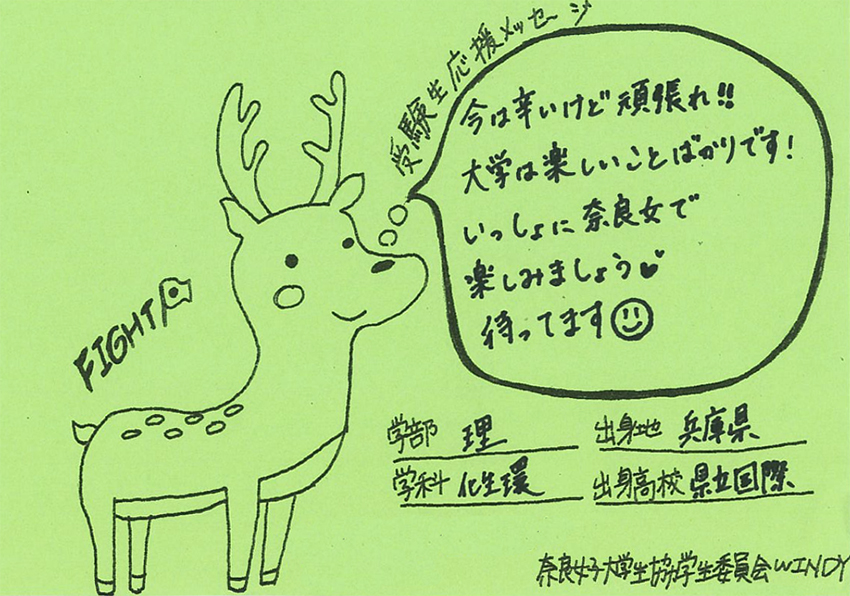 受験生応援メッセージ
今は辛いけど頑張れ!!
大学は楽しいことばかりです!
いっしょに奈良女で
楽しみましょう♥
待ってます☺
FIGHT
学部 理
出身地 兵庫県
学科 化生環
出身高校 県立国際
奈良女子大学生協学生委員会WINDY